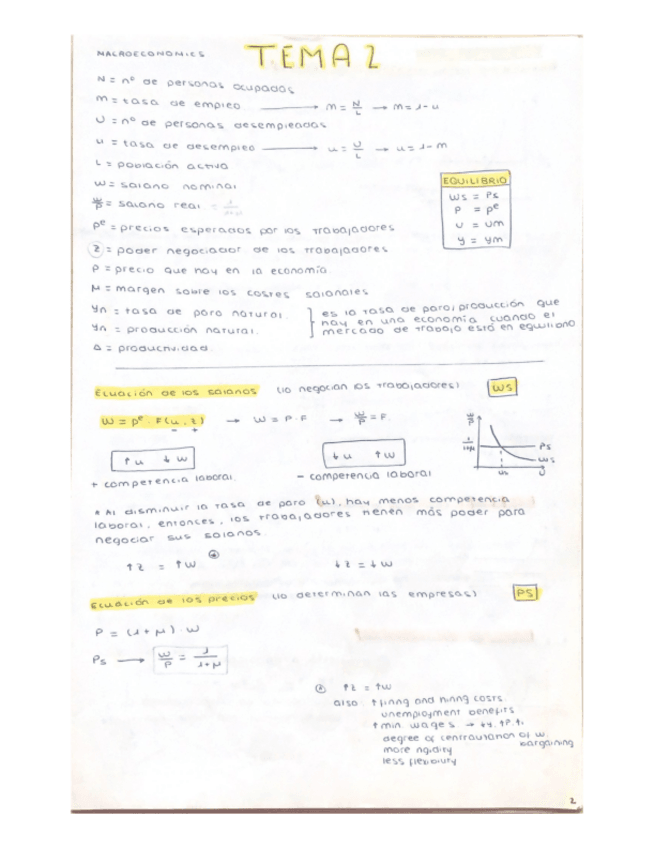 MACROECONOMICS
TEMA 2
N = nº de personas ocupadas
m = tasa de empleo → m = N/L → m = 1 - u
U = nº de personas desempleadas
u = tasa de desempleo → u = U/L → u = 1 - m
L = población activa
W = salario nominal
W/P = salario real
pᵉ = precios esperados por los trabajadores
z = poder negociador de los trabajadores
P = precio que hay en la economía.
μ = margen sobre los costes salariales
Yn = tasa de paro natural.
Yn = producción natural.
} es la tasa de paro/producción que
hay en una economía cuando el
mercado de trabajo está en equilibrio
A = productividad.
EQUILIBRIO
WS = PS
P = pᵉ
U = Um
Y = Ym
Ecuación de los salarios (lo negocian los trabajadores) WS
W = pᵉ · F(u, z) → W = P · F → W/P = F
- +
↑u ↓W
↓u ↑W
+ competencia laboral.
- competencia laboral
W/P
1/1+μ
PS
WS
U
* Al disminuir la tasa de paro (u), hay menos competencia
laboral, entonces, los trabajadores tienen más poder para
negociar sus salarios.
↑z = ↑W
↓z = ↓W
Ecuación de los precios (lo determinan las empresas) PS
P = (1 + μ) · W
PS → W/P = 1/1+μ
↑z = ↑W
also ↑ firing and hiring costs
unemployment benefits
↑ min. wages → ↓Y, ↑P.
degree of centralization of w.
bargaining
more rigidity
less flexibility
2